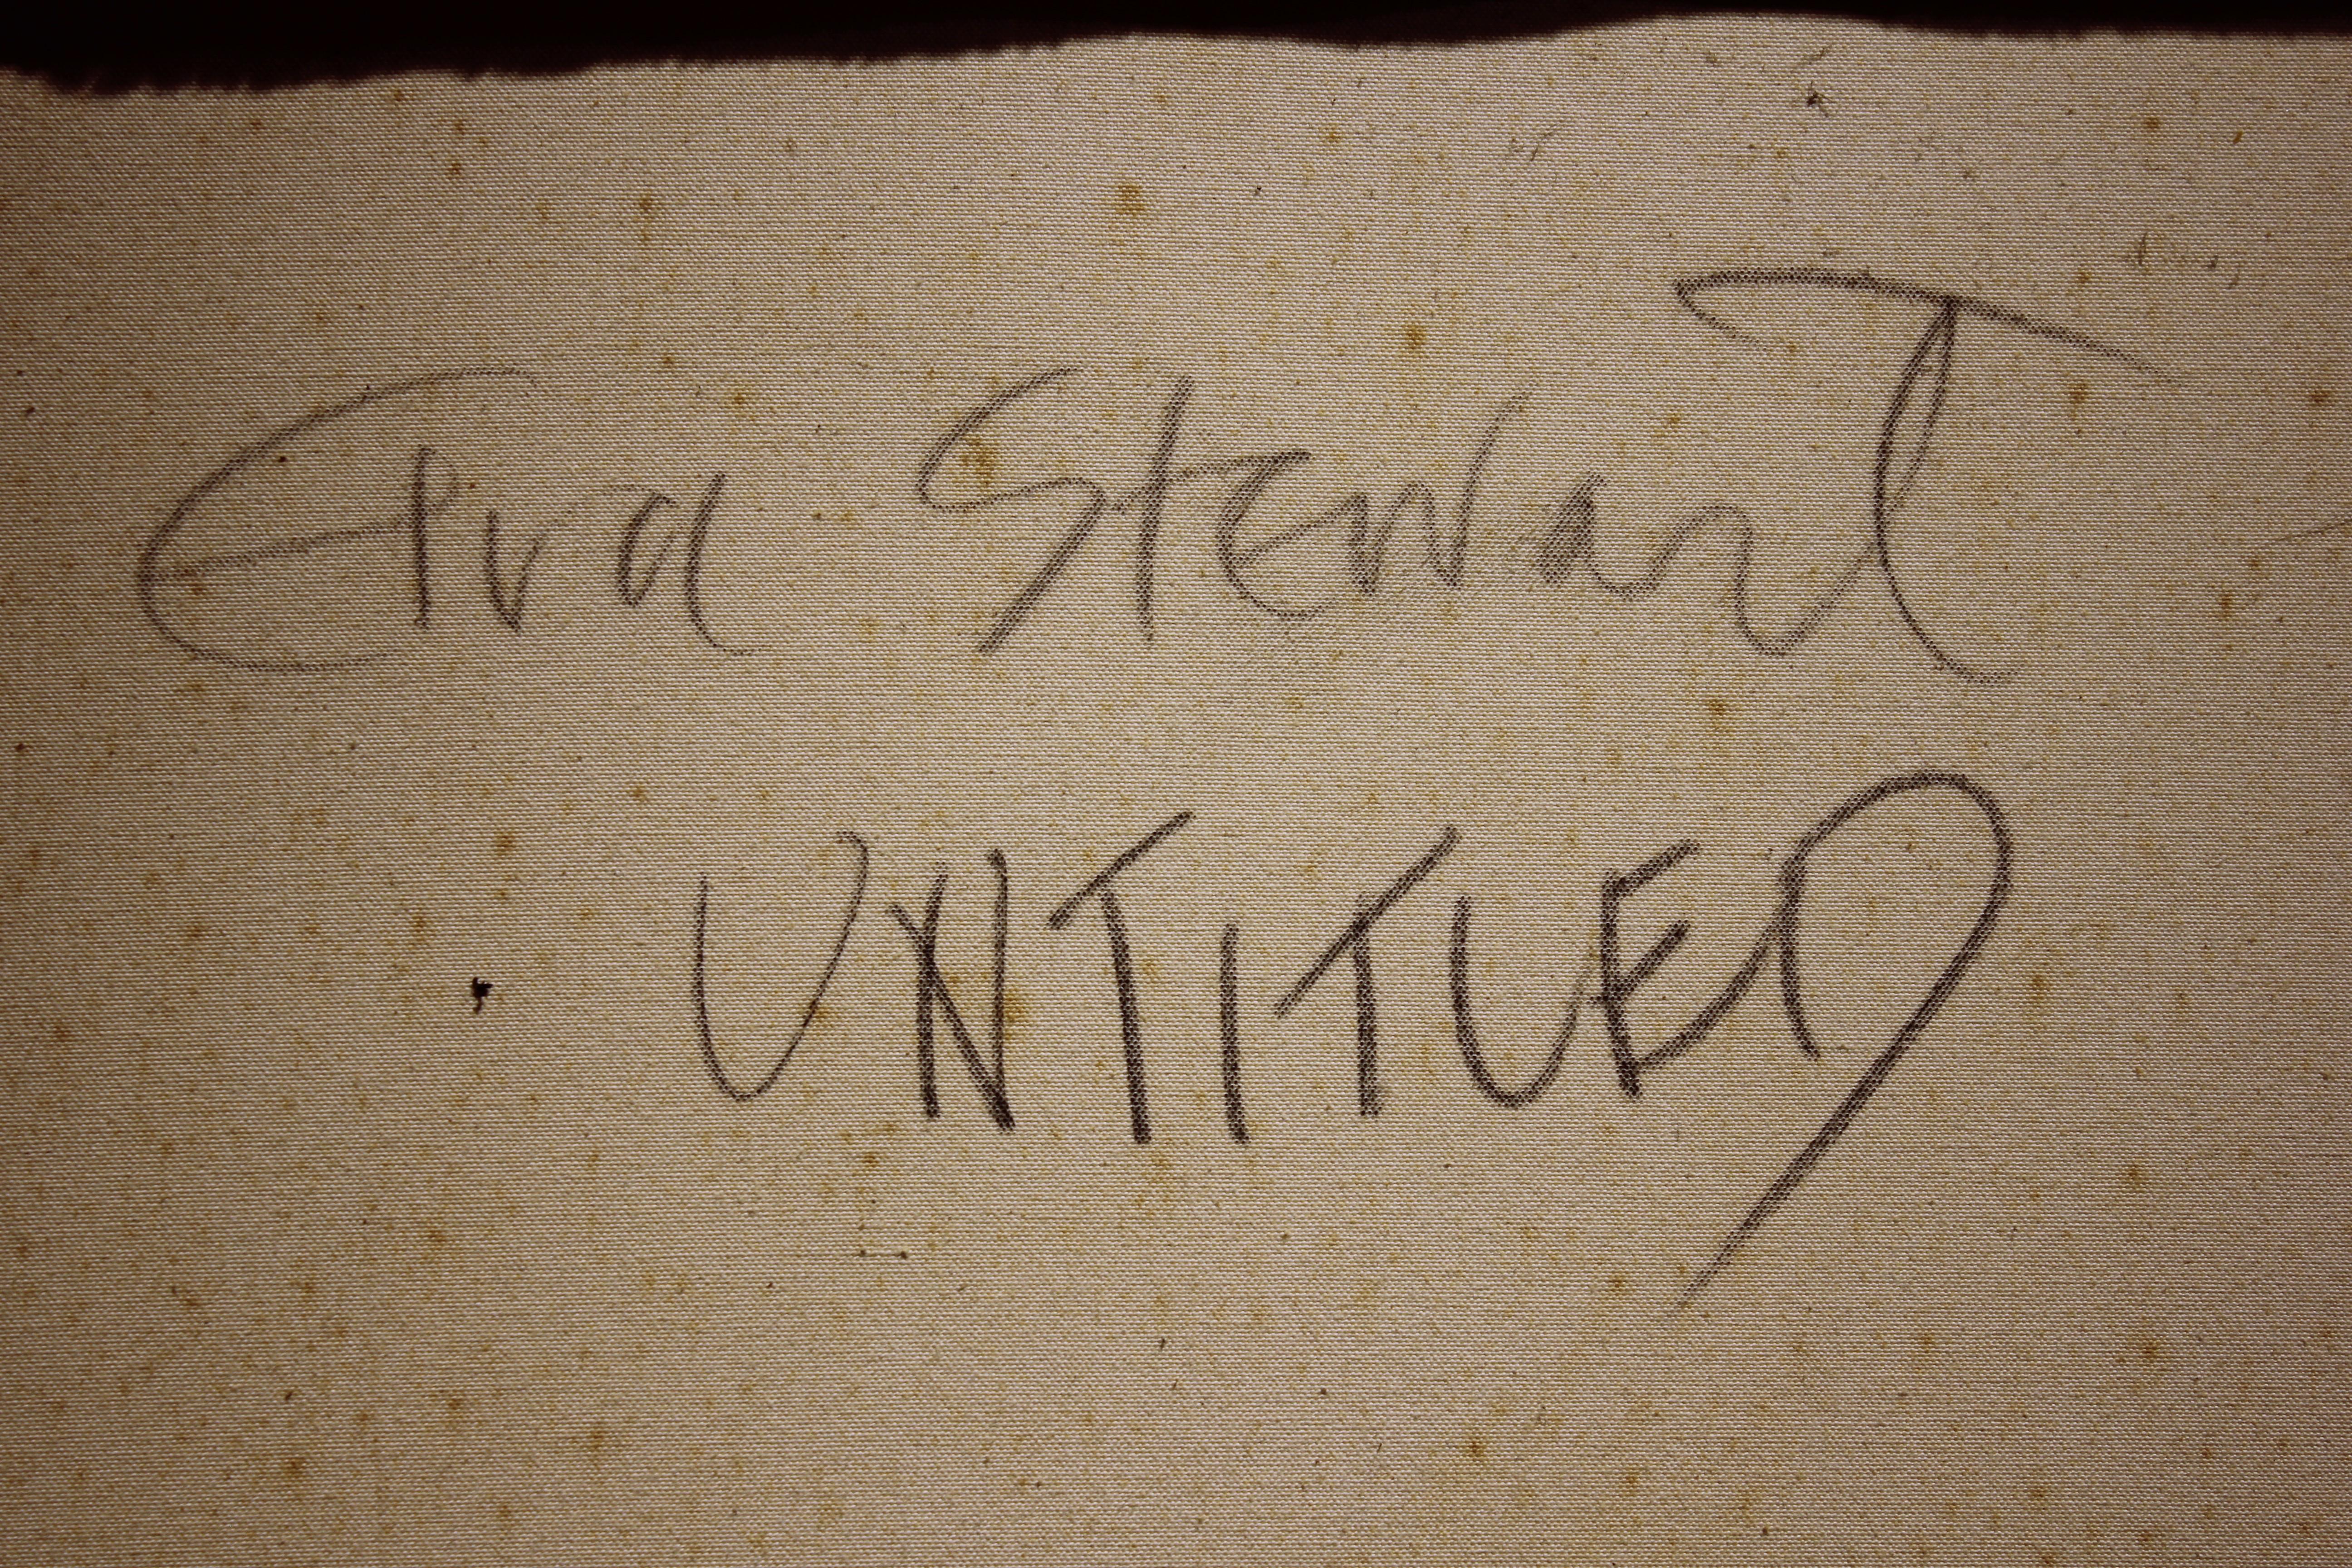 Elva Stewart
UNTITLED